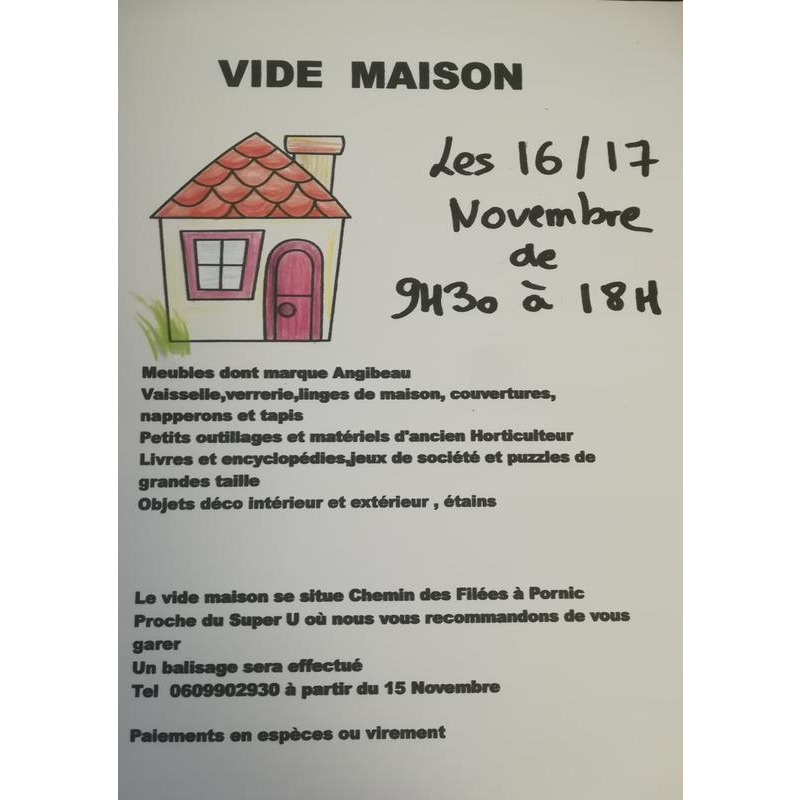 VIDE MAISON
Les 16/17
Novembre
de
9H30 à 18H
Meubles dont marque Angibeau
Vaisselle,verrerie,linges de maison, couvertures,
napperons et tapis
Petits outillages et matériels d'ancien Horticulteur
Livres et encyclopédies,jeux de société et puzzles de
grandes taille
Objets déco intérieur et extérieur , étains
Le vide maison se situe Chemin des Filées à Pornic
Proche du Super U où nous vous recommandons de vous
garer
Un balisage sera effectué
Tel 0609902930 à partir du 15 Novembre
Paiements en espèces ou virement